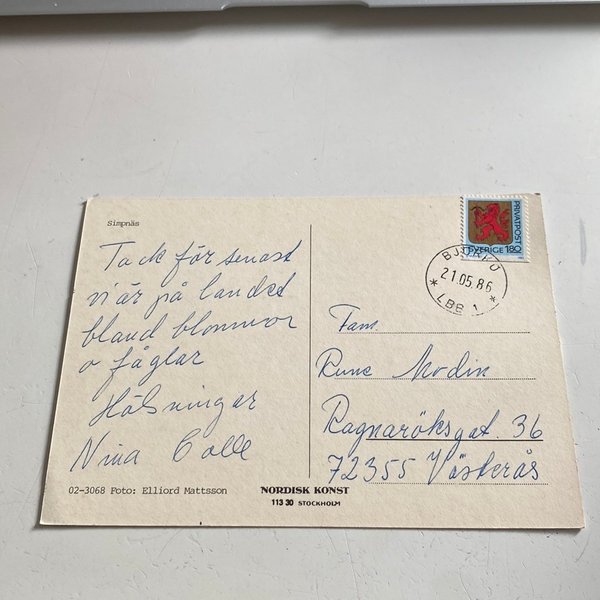 Simpnäs
Tack för senast
vi är på landet
bland blommor
o fåglar
Hälsningar
Nina Calle
02-3068 Foto: Elliord Mattsson
NORDISK KONST
113 30 STOCKHOLM
PRIVATPOST
SVERIGE 180
BJÖRKÖ
21.05.86
* LBB 1 *
Fam.
Rune Modin
Ragnaröksgat. 36
72355 Västerås